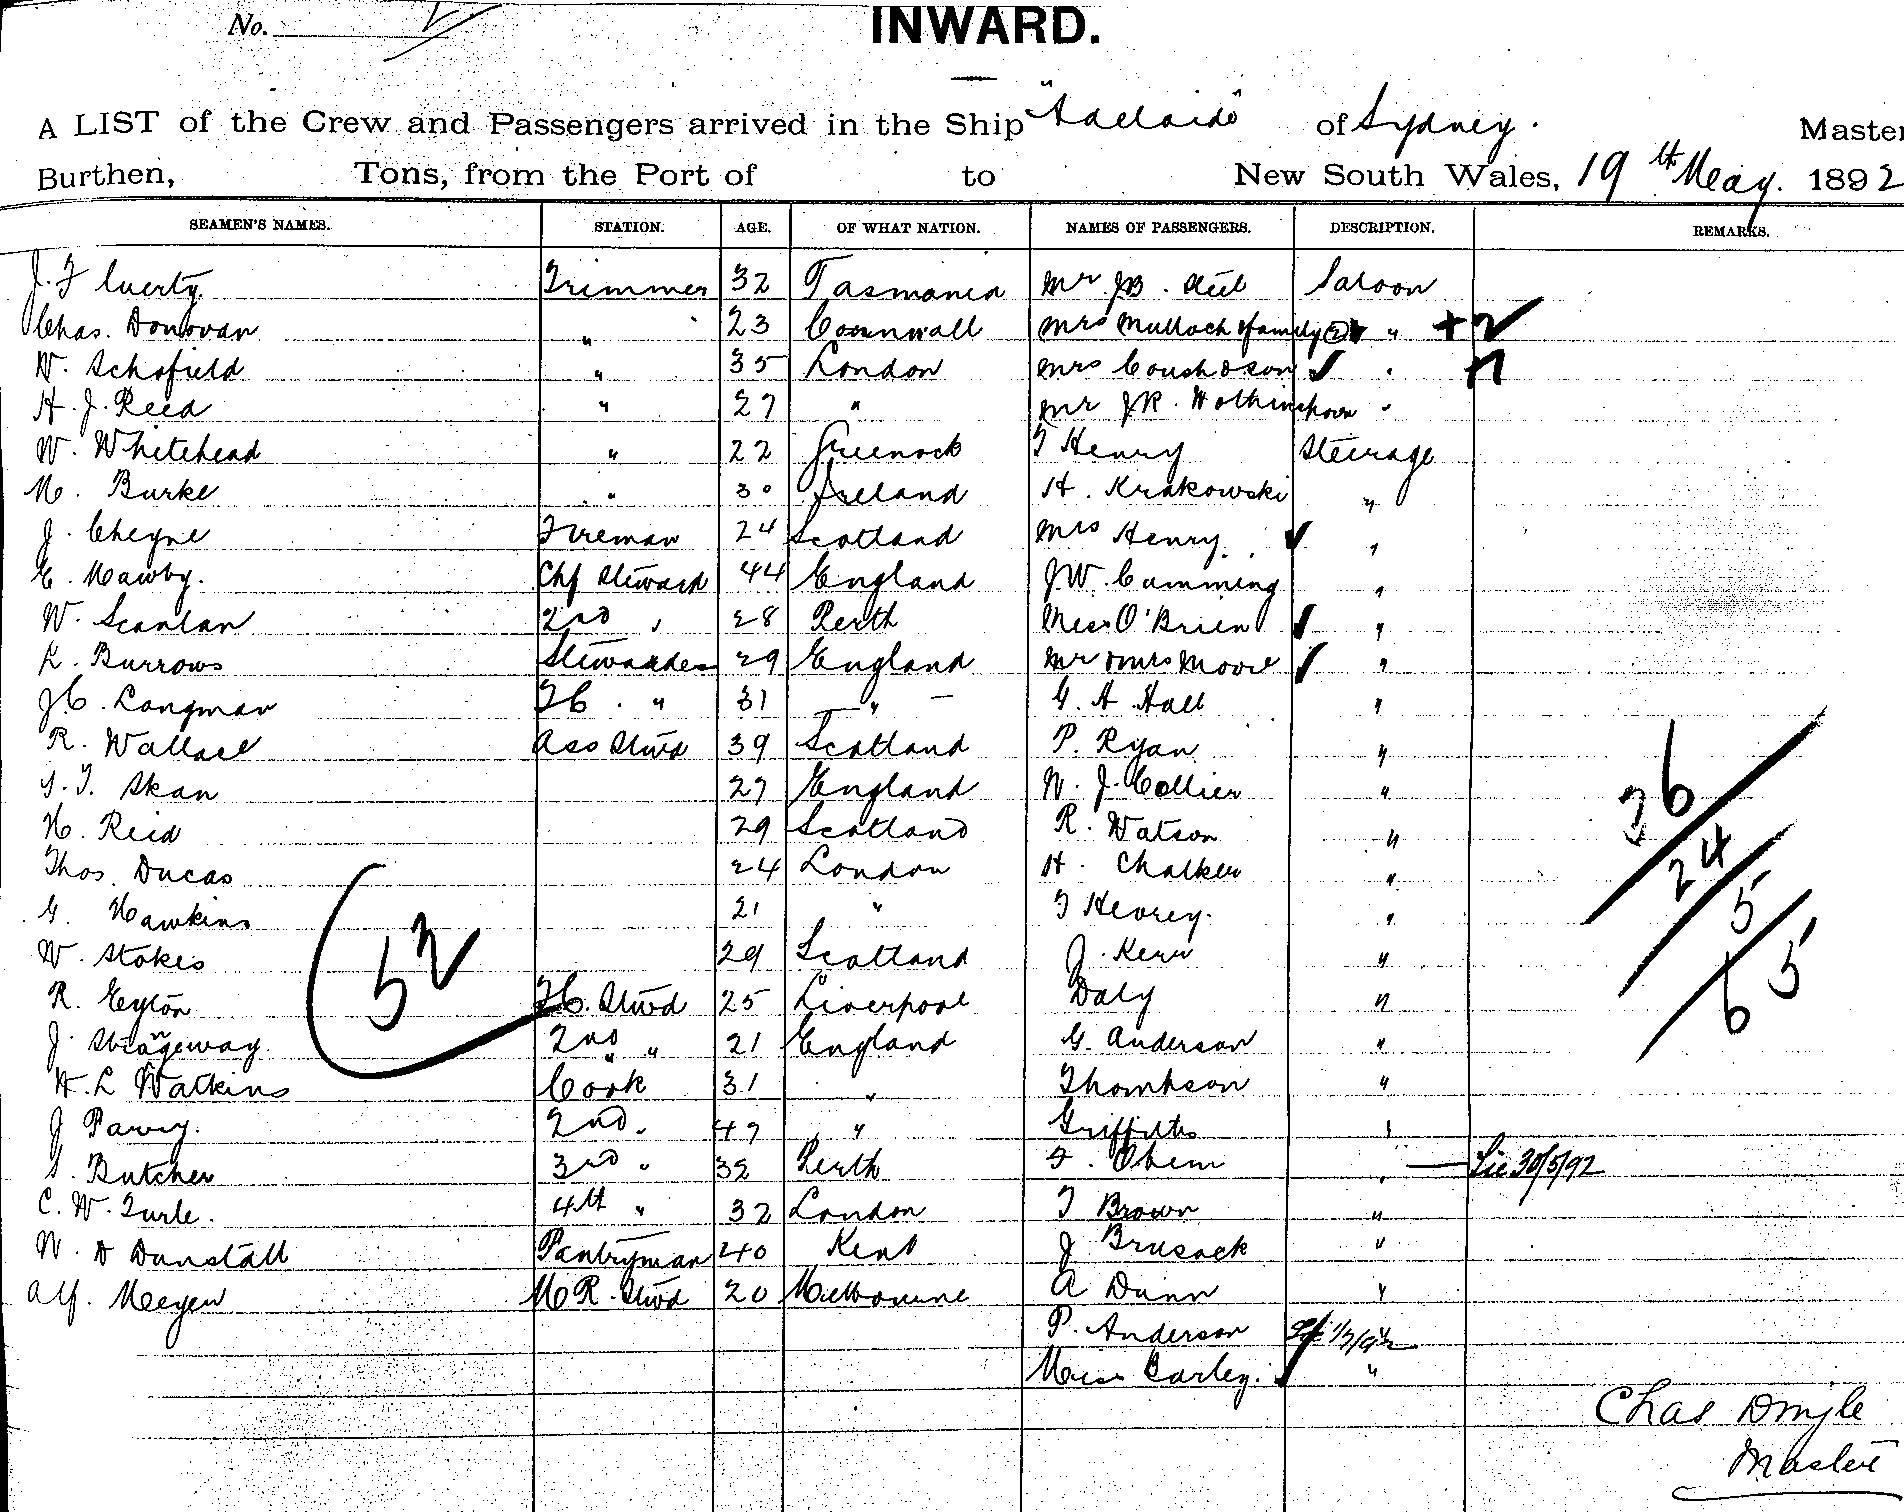 No.
INWARD.
A LIST of the Crew and Passengers arrived in the Ship "Adelaide" of Sydney. Master
Burthen, Tons, from the Port of to New South Wales, 19th May. 1892
SEAMEN'S NAMES. STATION. AGE. OF WHAT NATION. NAMES OF PASSENGERS. DESCRIPTION. REMARKS.
J. F Cuerty Trimmer 32 Tasmania Mr JB. Saloon
Chas. Donovan " 23 Cornwall Mrs Mulloch & family " + 2
W. Schofield " 35 London Mrs "
H. J. Reed " 27 " Mr JR. "
W. Whitehead " 22 Greenock T Henry Steerage
M. Burke " 30 Ireland H. Krakowski "
J. Cheyne Fireman 24 Scotland Mrs Henry "
E. Mawby. Chf Steward 44 England J.W. Cumming "
W. Scanlan 2nd " 28 Perth Miss O'Brien "
L. Burrows Stewardess 29 England Mr & Mrs Moore "
J C. Langman FC. " 31 " G. A Hall "
R. Wallace Ass Stwd 39 Scotland P. Ryan "
S. T. Skan 27 England W. J. Collier "
H. Reid 29 Scotland R. Watson "
Thos. Ducas 24 London H. Chalker "
G. Hawkins 21 " T Hevrey. "
W. Stokes 29 Scotland J. Kerr "
R. Eyton FC. Stwd 25 Liverpool Daly "
J. Strangeway 2nd " " 21 England G. Anderson "
H. L Watkins Cook 31 " Thompson "
J Parry. 2nd. 47 " Griffiths "
S. Butcher 3rd " 32 Perth F. " 30/5/92
C. W. Turle. 4th " 32 London T Brown "
W. D Dunstall Pantryman 40 Kent J Brusack "
Alf. Meeyen M R. Stwd 20 Melbourne A Dunn "
P. Anderson
Miss Barley. "
52
26
24
5
65
Chas Dingle
Master